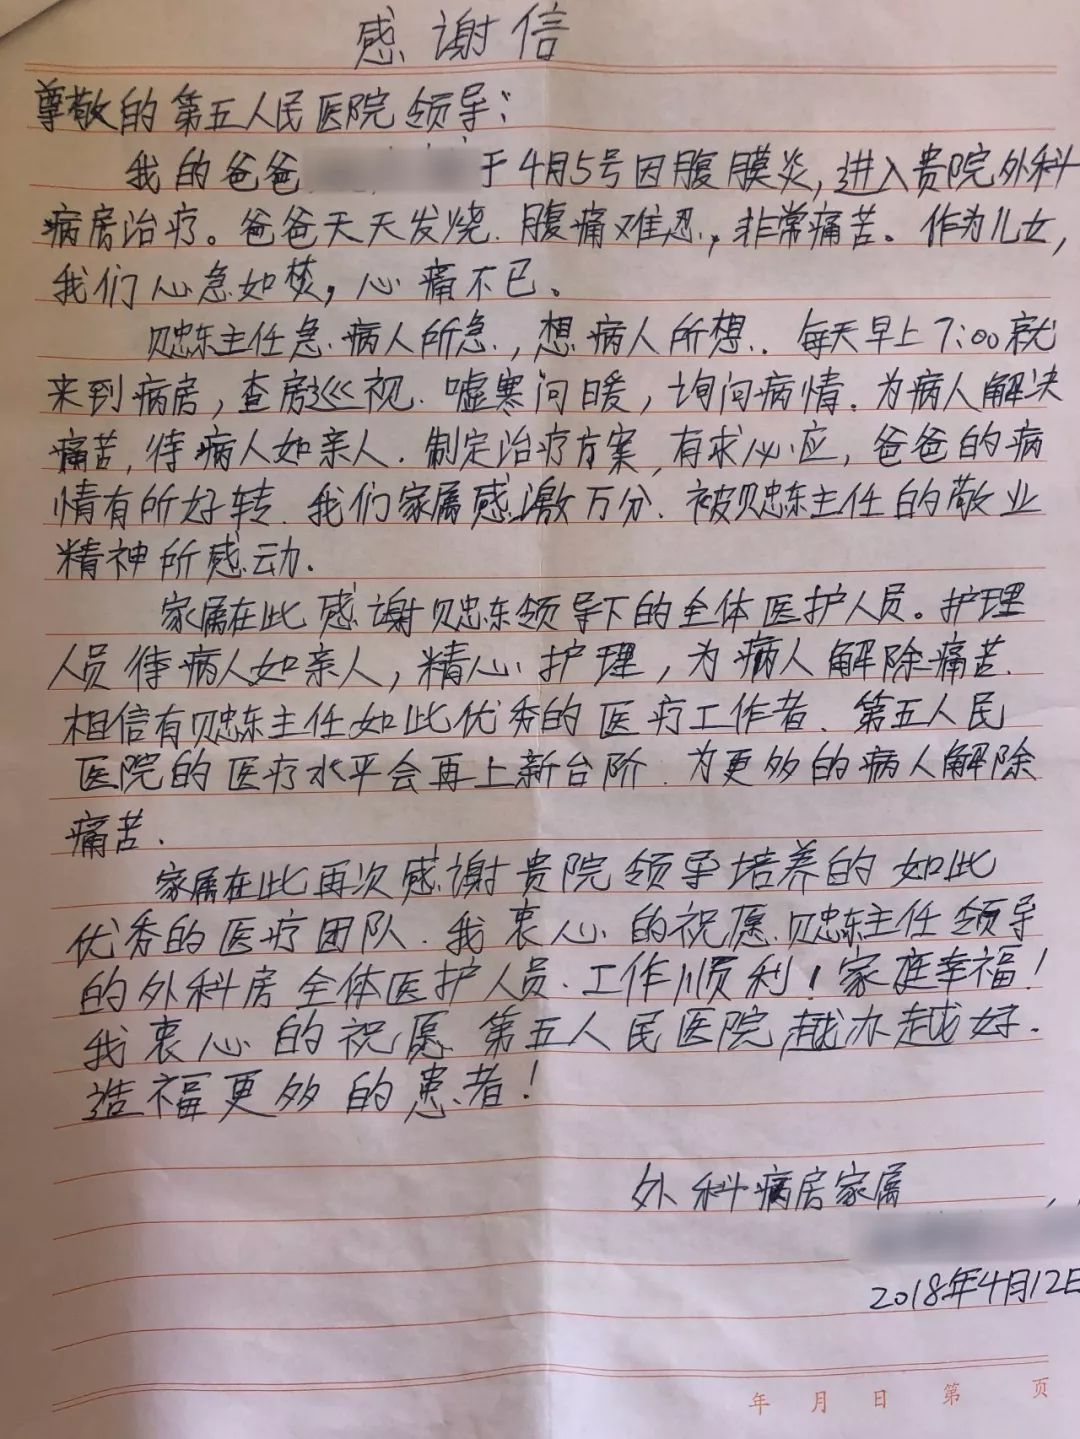 感谢信
尊敬的第五人民医院领导：
我的爸爸 于4月5号因腹膜炎,进入贵院外科
病房治疗。爸爸天天发烧.腹痛难忍,非常痛苦。作为儿女,
我们心急如焚,心痛不已。
贝忠东主任急病人所急,想病人所想.每天早上7:00就
来到病房,查房巡视.嘘寒问暖,询问病情.为病人解决
痛苦,待病人如亲人.制定治疗方案,有求必应,爸爸的病
情有所好转.我们家属感激万分.被贝忠东主任的敬业
精神所感动.
家属在此感谢贝忠东领导下的全体医护人员。护理
人员待病人如亲人,精心护理,为病人解除痛苦.
相信有贝忠东主任如此优秀的医疗工作者.第五人民
医院的医疗水平会再上新台阶.为更多的病人解除
痛苦.
家属在此再次感谢贵院领导培养的如此
优秀的医疗团队.我衷心的祝愿.贝忠东主任领导
的外科房全体医护人员.工作顺利!家庭幸福!
我衷心的祝愿第五人民医院,越办越好.
造福更多的患者!
外科病房家属
2018年4月12日
年 月 日 第 页